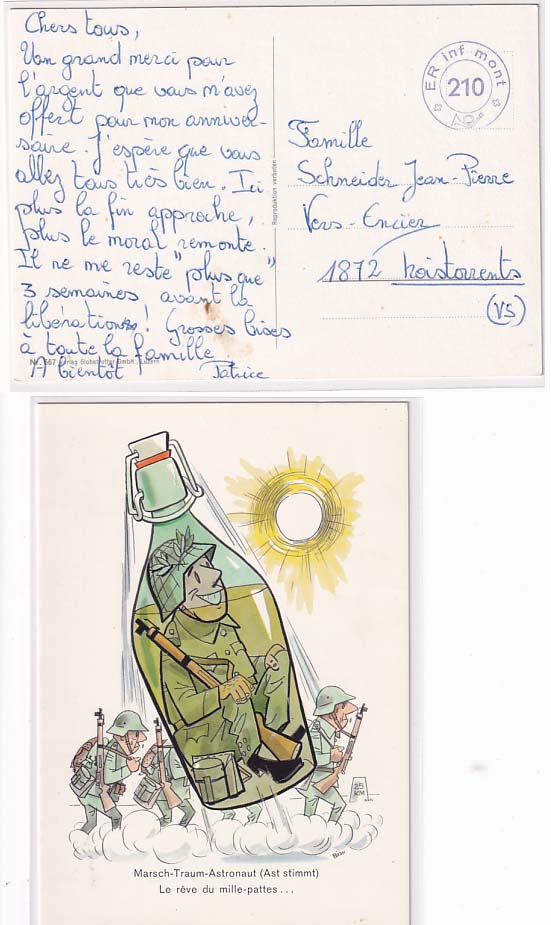 Chers tous,
Un grand merci pour
l'argent que vous m'avez
offert pour mon anniver-
saire. J'espère que vous
allez tous très bien. Ici
plus la fin approche,
plus le moral remonte.
Il ne me reste "plus que"
3 semaines avant la
libération! Grosses bises
à toute la famille.
A bientôt Patrice
Nr. 667 Verlag Globetrotter GmbH., Luzern
Reproduktion verboten
ER inf mont
210
Famille
Schneider Jean-Pierre
Vers-Encier
1872 Troistorrents
(VS)
25
KM
Marsch-Traum-Astronaut (Ast stimmt)
Le rêve du mille-pattes...